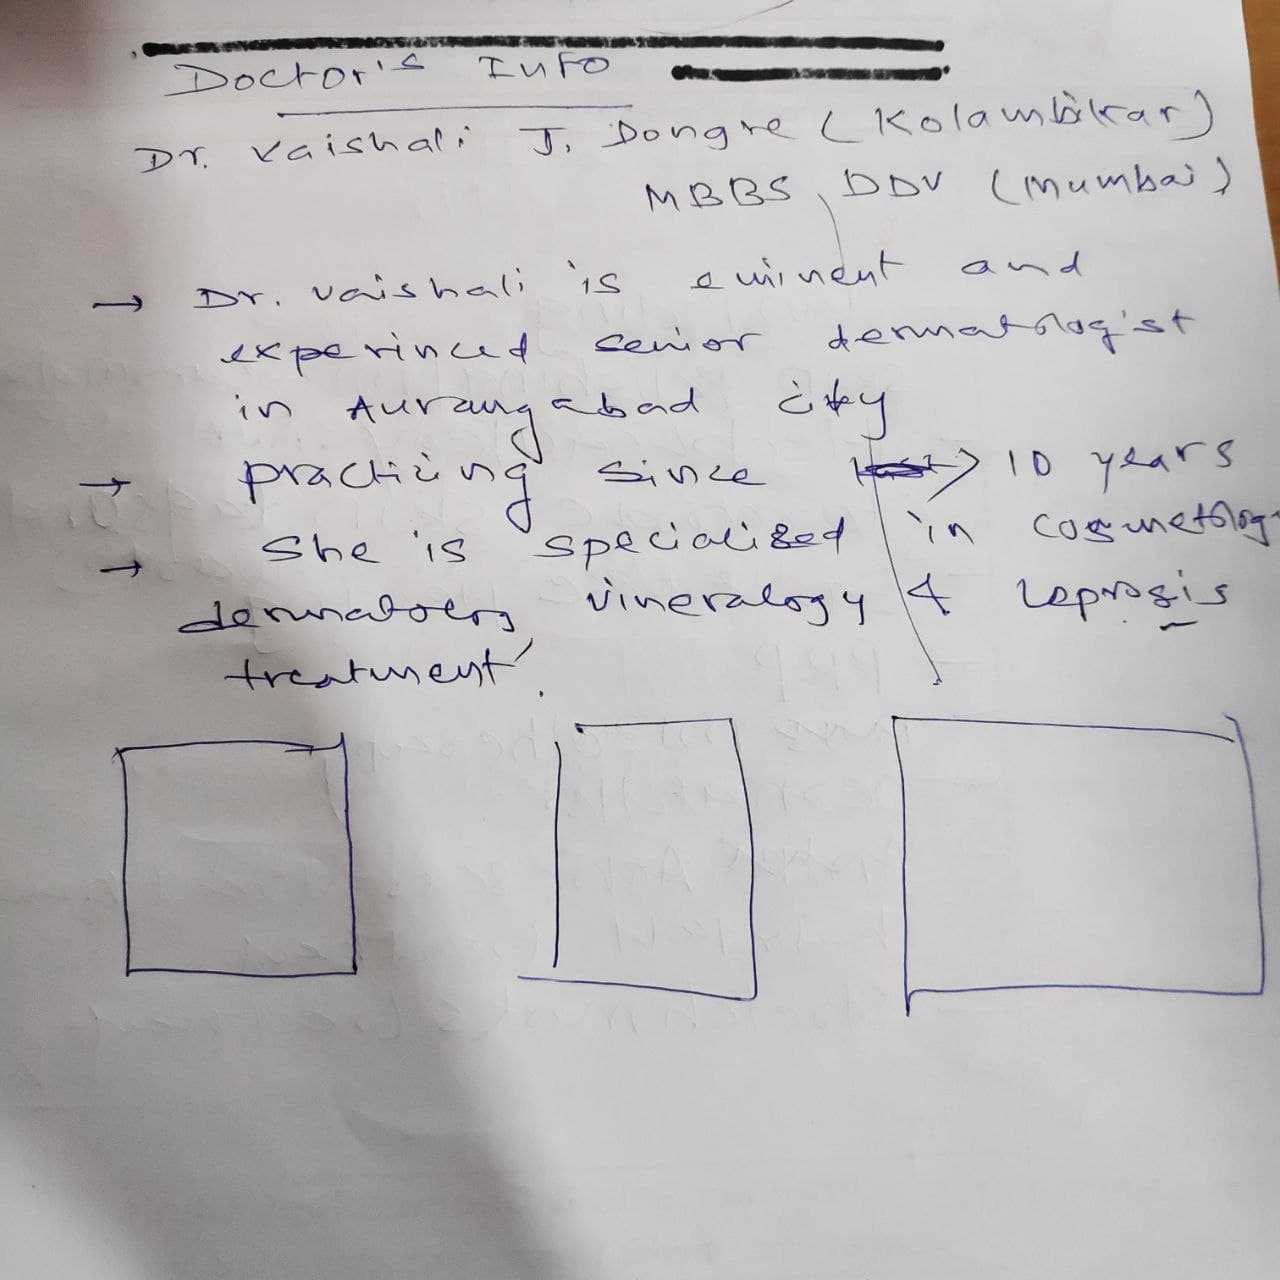 Doctor's Info
Dr. Vaishali J. Dongre (Kolambikar)
MBBS, DDV (Mumbai)
→ Dr. vaishali is eminent and
experinced senior dermatologist
in Aurangabad city
→ practicing since > 10 years
→ She is specialised in cosmetology
dermatology vineralogy & leprosis
treatment.